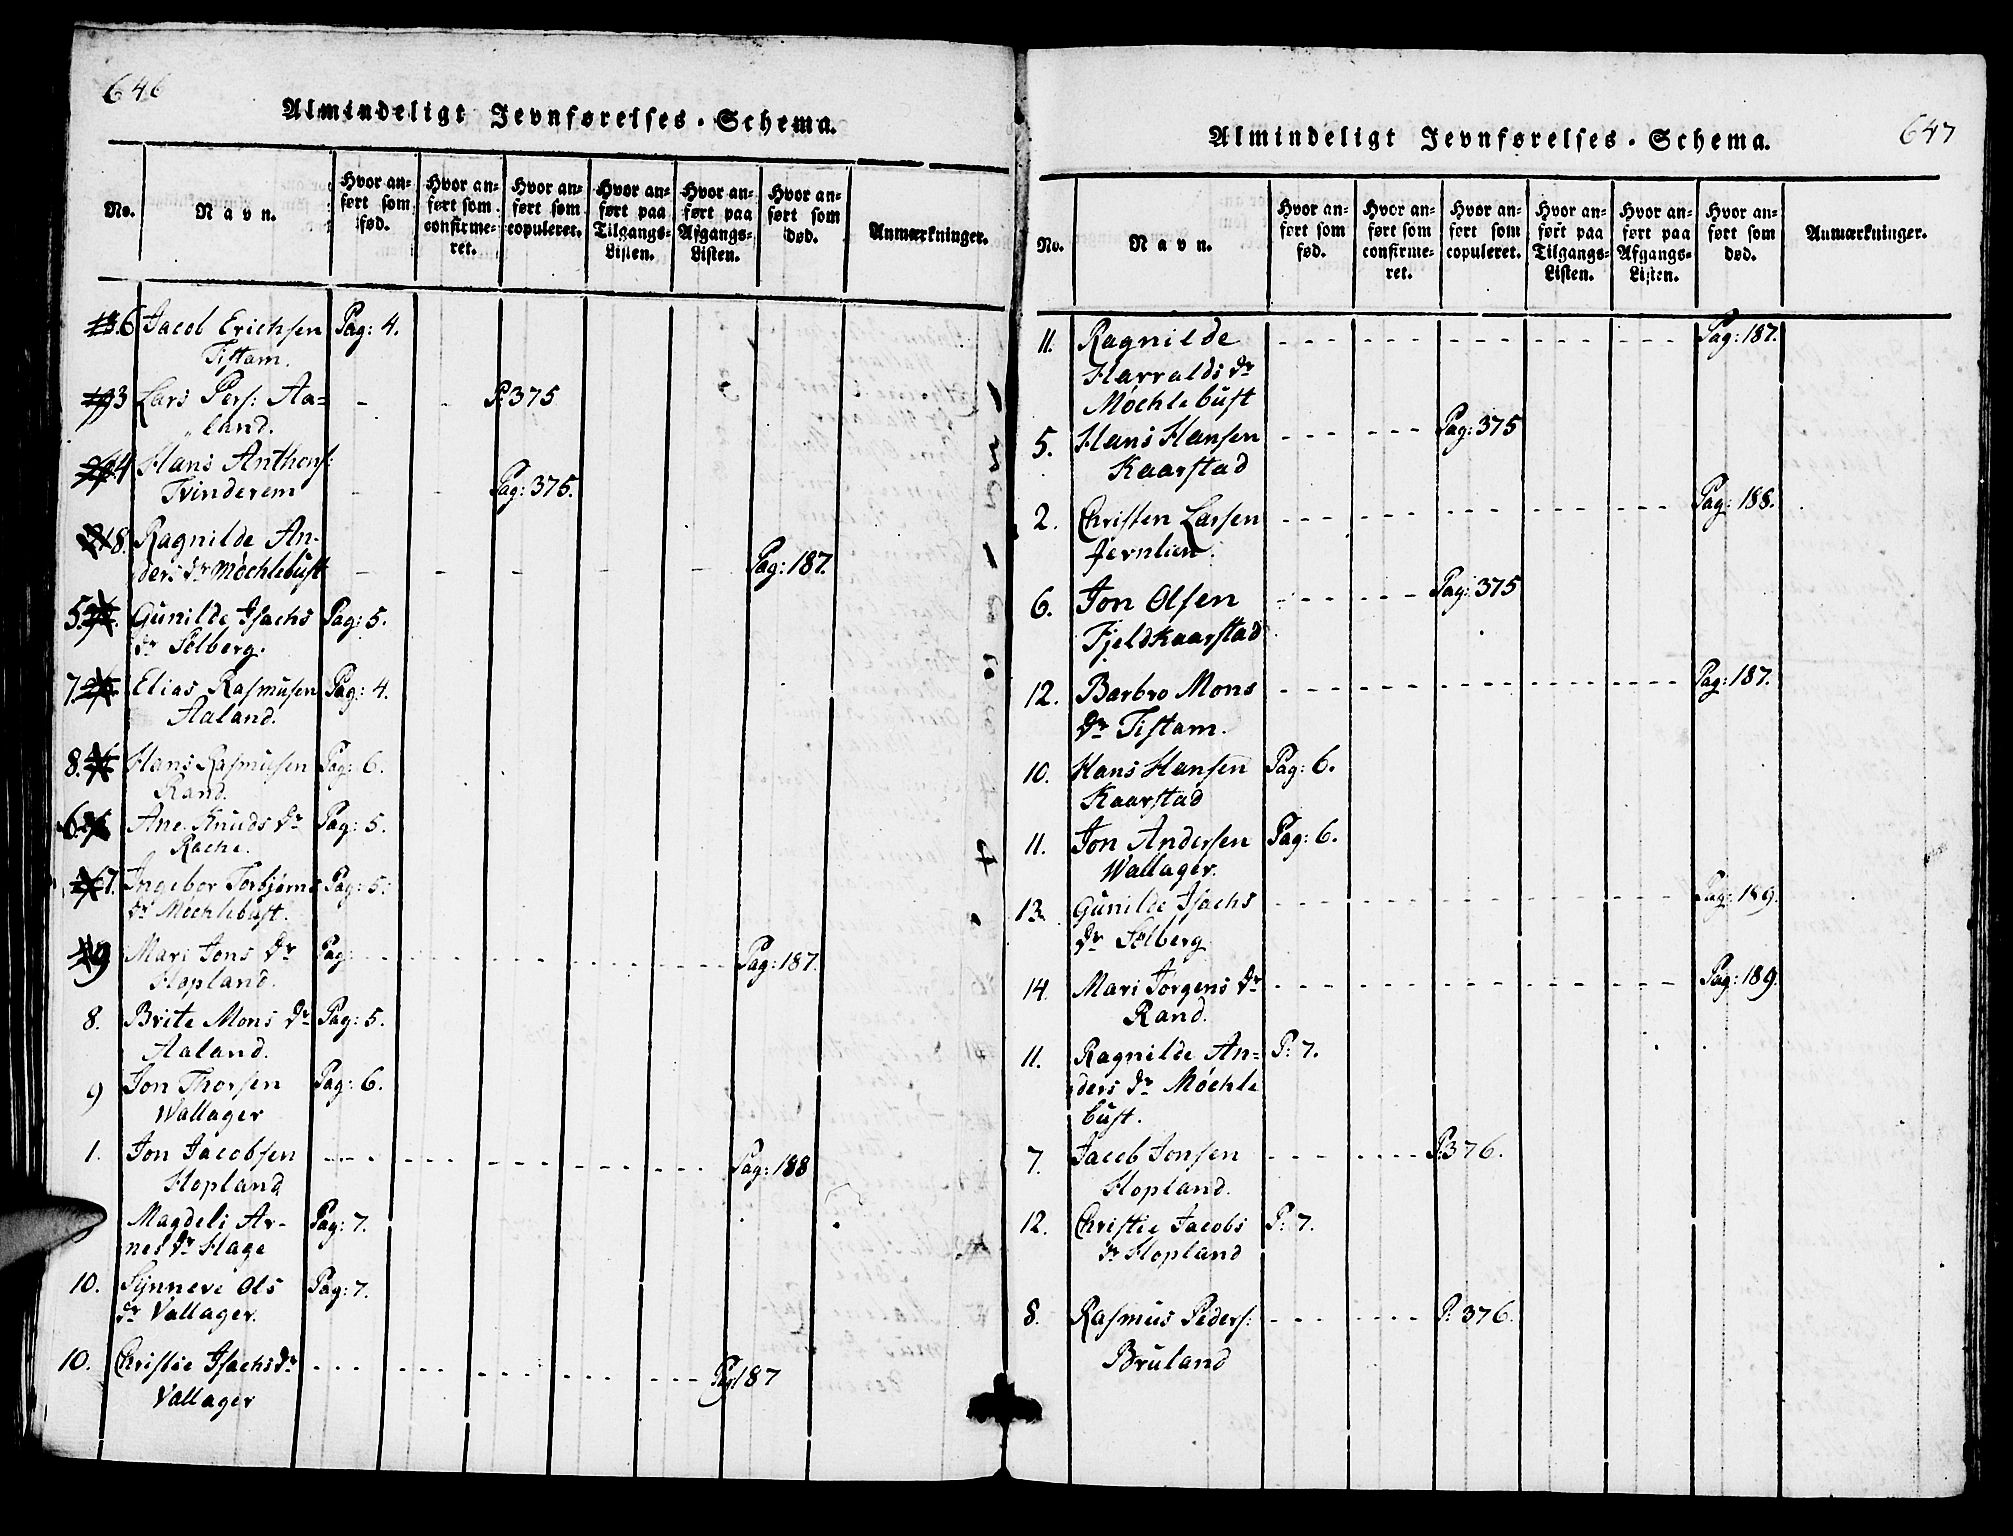 646
Almindeligt Jevnførelses-Schema.
No. Navn. Hvor anført som født. Hvor anført som confirmeret. Hvor anført som copuleret. Hvor anført paa Tilgangs-Listen. Hvor anført paa Afgangs-Listen. Hvor anført som død. Anmærkninger.
6 Jacob Erichsen Pag: 4.
Tistam.
3 Lars Pers: Aa= - - P: 375
land.
4 Hans Anthons:
Tvinderem - - Pag: 375.
8. Ragnilde An-
ders dr Møchlebust - - - - - Pag: 187.
5. Gunilde Isachs Pag: 5.
dr Solberg.
7. Elias Rasmusen Pag: 4.
Aaland.
8. Hans Rasmusen Pag: 6.
Rand.
6 Ane Knuds dr Pag: 5.
Rache.
7. Ingebor Torbjørns Pag: 5.
dr Møchlebust.
9 Mari Jons dr Pag: - - - - - Pag: 187.
Hopland.
8. Brite Mons dr Pag: 5.
Aaland.
9 Jon Thorsen Pag: 6.
Wallager
1. Jon Jacobsen - - - - - Pag: 188
Hopland
Magdeli Ar- Pag: 7.
nes dr Hage
10. Synneve Ols Pag: 7.
dr Vallager.
10. Christie Isachs dr - - - - - Pag 187
Vallager
647
Almindeligt Jevnførelses-Schema.
No. Navn. Hvor anført som fød. Hvor anført som confirmeret. Hvor anført som copuleret. Hvor anført paa Tilgangs-Listen. Hvor anført paa Afgangs-Listen. Hvor anført som død. Anmærkninger.
11. Ragnilde - - - - - Pag: 187.
Harralds dr
Møchlebust
5. Hans Hansen - - Pag: 375
Kaarstad
2. Christen Larsen - - - - - Pag: 188.
Jernlien.
6. Jon Olsen - - Pag: 375
Fjeldkaarstad
12. Barbro Mons - - - - - Pag: 187.
dr Tistam.
10. Hans Hansen Pag: 6.
Kaarstad
11. Jon Andersen Pag: 6.
Wallager.
13. Gunilde Isachs - - - - - Pag: 189.
dr Solberg
14. Mari Jørgens dr - - - - - Pag: 189.
Rand.
11. Ragnilde An= P: 7.
ders dr Møchle
bust.
7. Jacob Jonsen - - P: 376.
Hopland.
12. Christie Jacobs P: 7.
dr Hopland
8. Rasmus Peders: - - P: 376.
Bruland